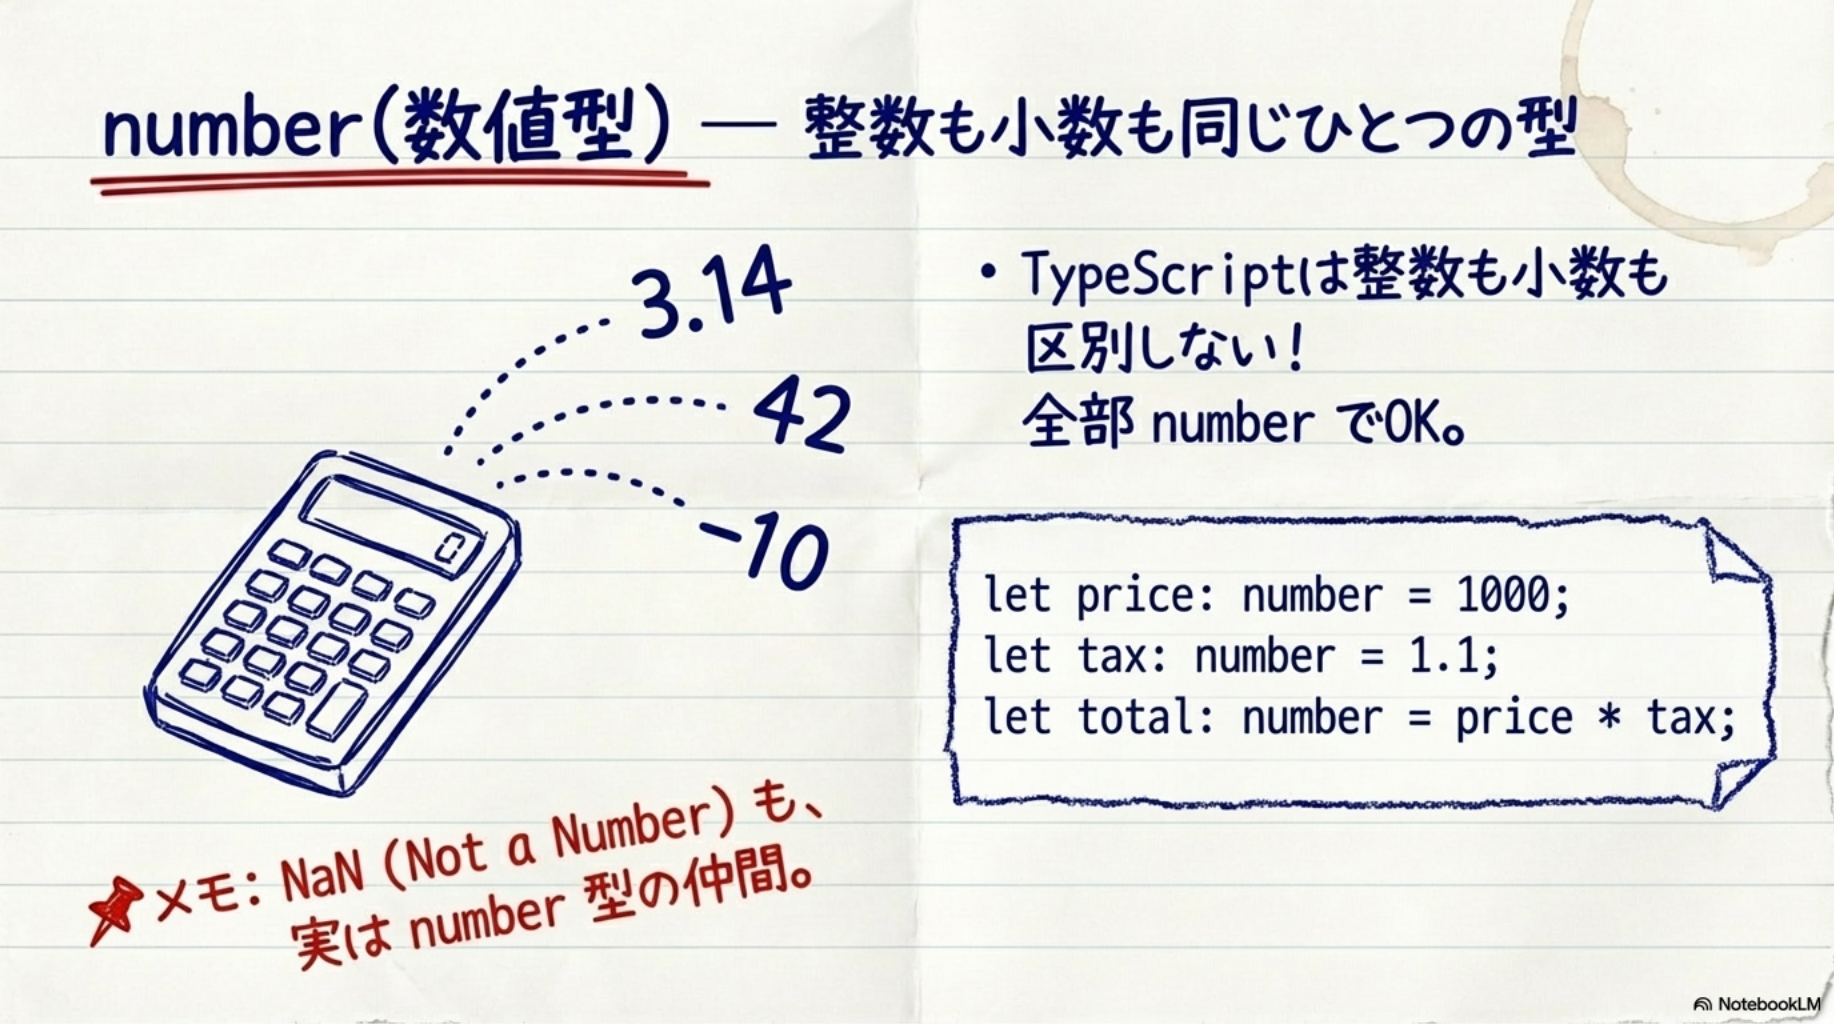 number(数値型) — 整数も小数も同じひとつの型
3.14
42
-10
0
• TypeScriptは整数も小数も
区別しない!
全部 number でOK。
let price: number = 1000;
let tax: number = 1.1;
let total: number = price * tax;
メモ: NaN (Not a Number) も、
実は number 型の仲間。
NotebookLM